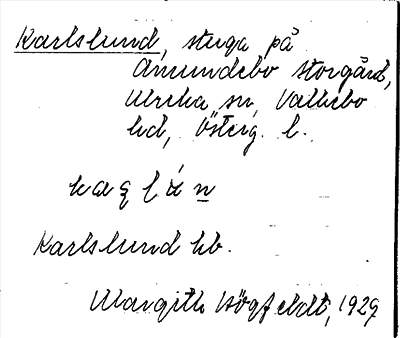 Karlslund, stuga på
Amundebo storgård,
Ulrika sn, Valkebo
hd, Österg. l.
Karlslund hb.
Margith Högfeldt, 1929